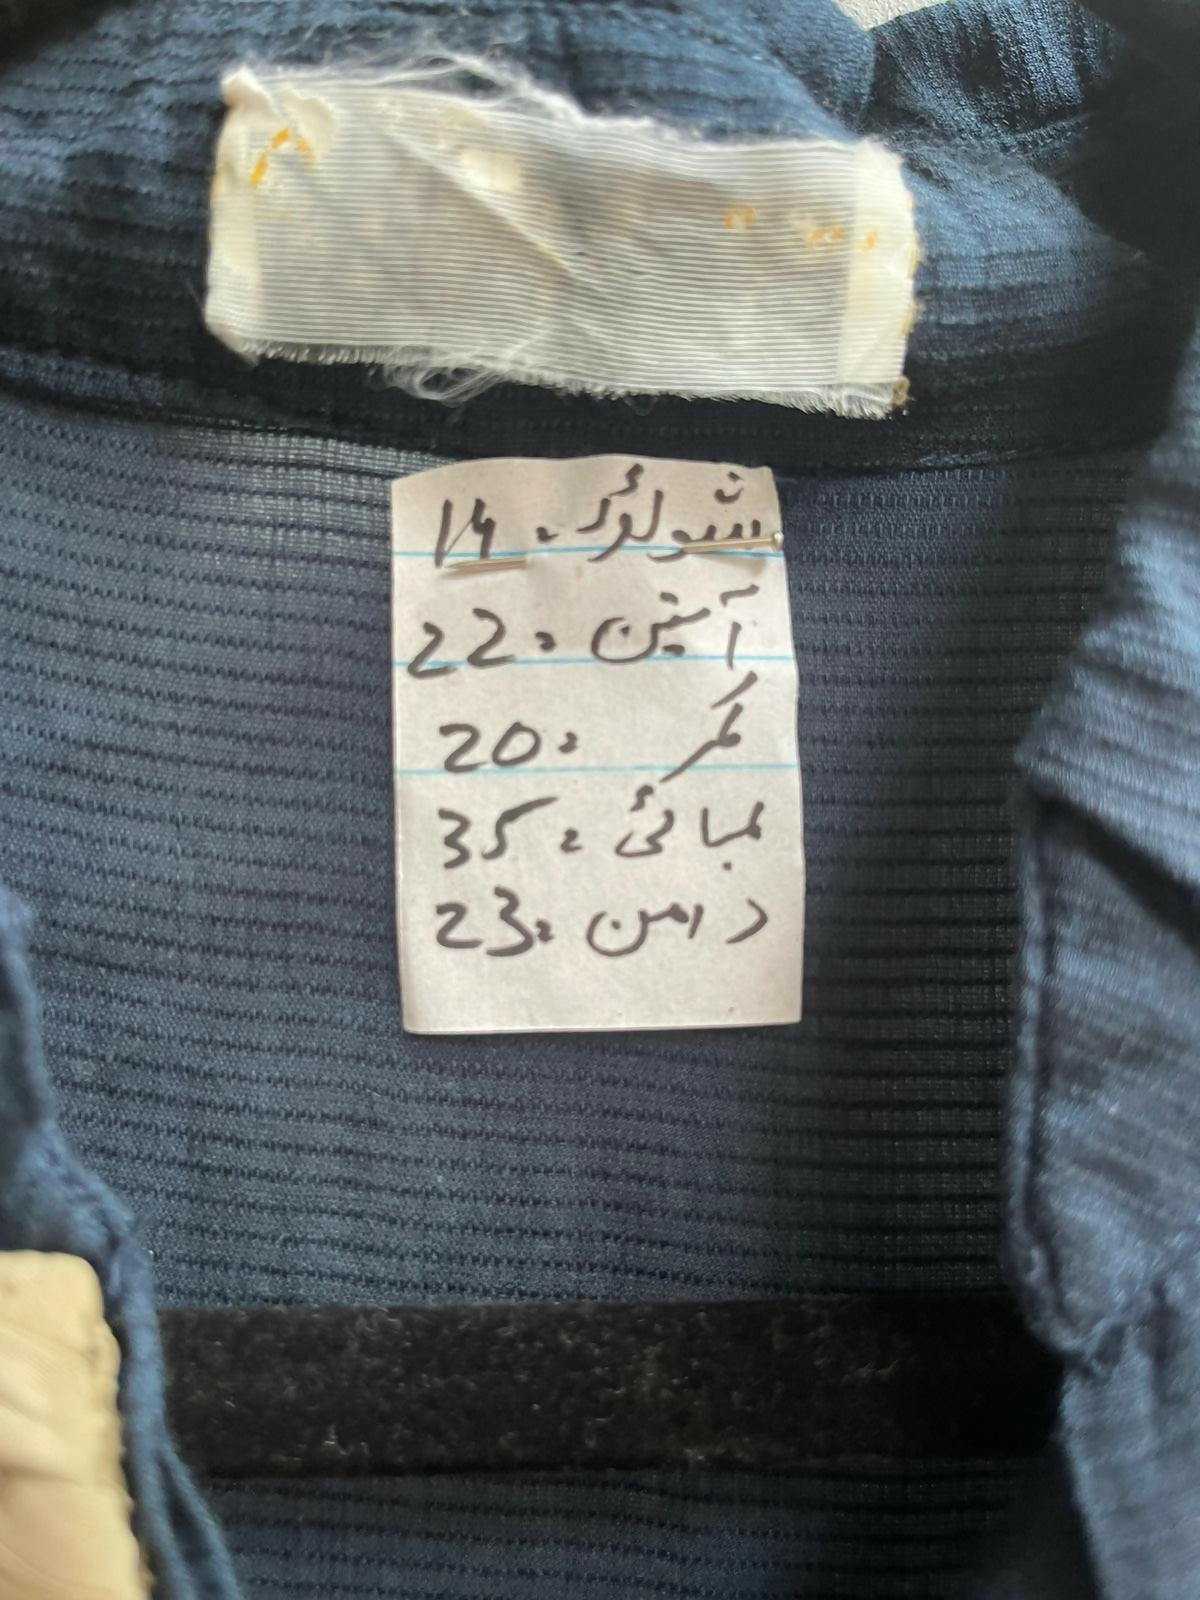 شولڈر 14
آستین 22
کمر 20
لمبائی 35
دامن 23